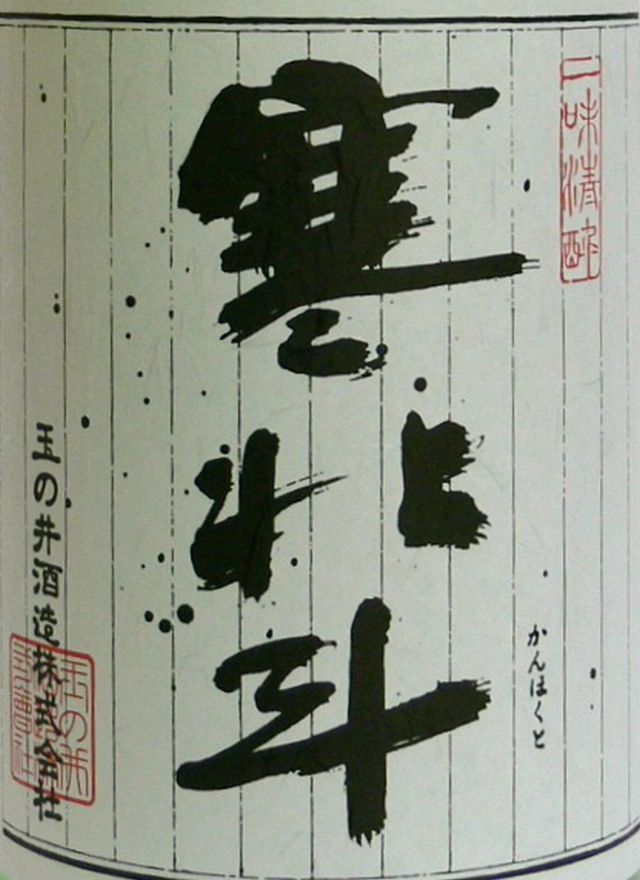 一味清
かんほくと
寒北斗
玉の井酒造株式会社